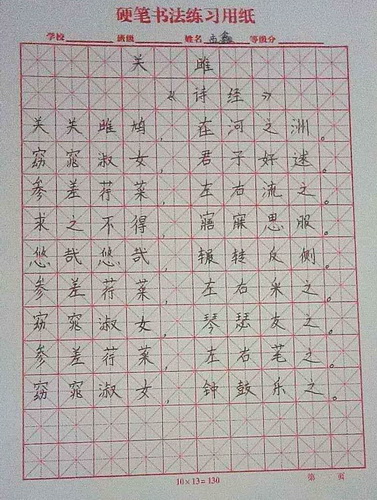 硬笔书法练习用纸
学校 班级 姓名 鑫 等级分
关雎
《诗经》
关关雎鸠，在河之洲。
窈窕淑女，君子好逑。
参差荇菜，左右流之。
求之不得，寤寐思服。
悠哉悠哉，辗转反侧。
参差荇菜，左右采之。
窈窕淑女，琴瑟友之。
参差荇菜，左右芼之。
窈窕淑女，钟鼓乐之。
10×13=130 第 页